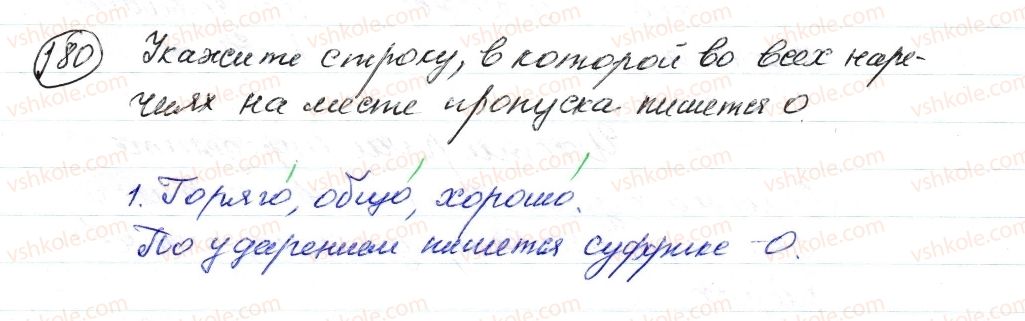 180 Укажите строку, в которой во всех наре-
чиях на месте пропуска пишется о.
1. Горячо, общо, хорошо.
По ударением пишется суффикс -о.
vshkole.com